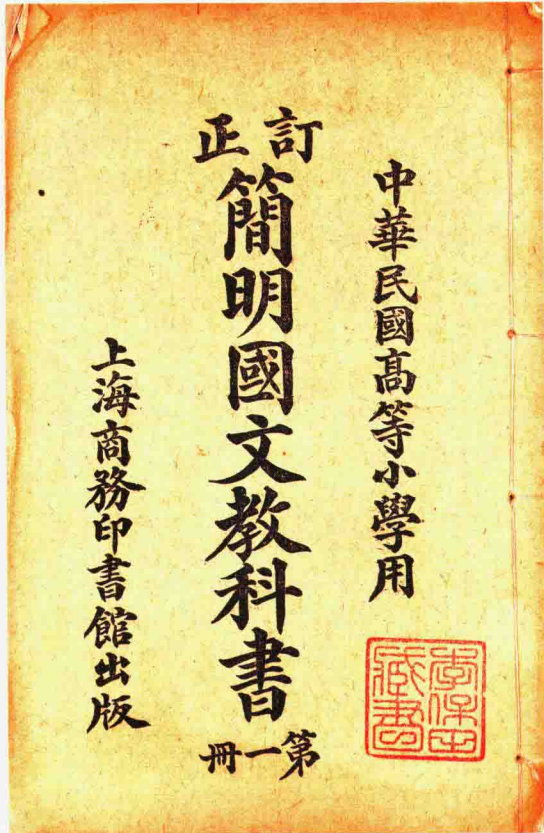 中華民國高等小學用
訂正
簡明國文教科書
第一冊
上海商務印書館出版